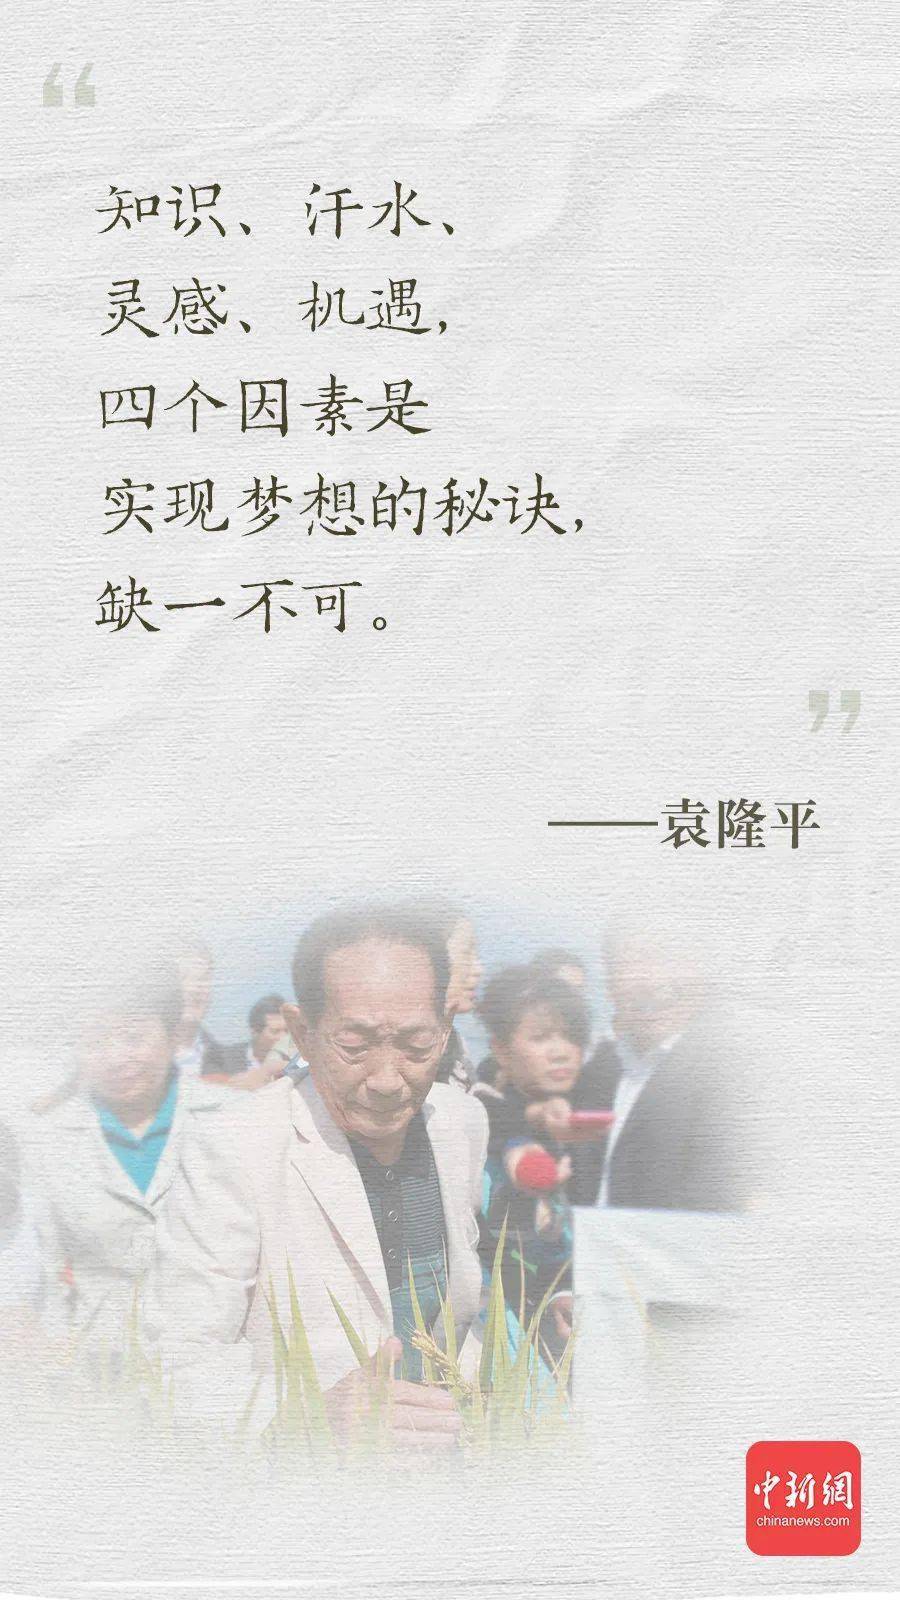 “
知识、汗水、
灵感、机遇，
四个因素是
实现梦想的秘诀，
缺一不可。
”
——袁隆平
中新網
chinanews.com